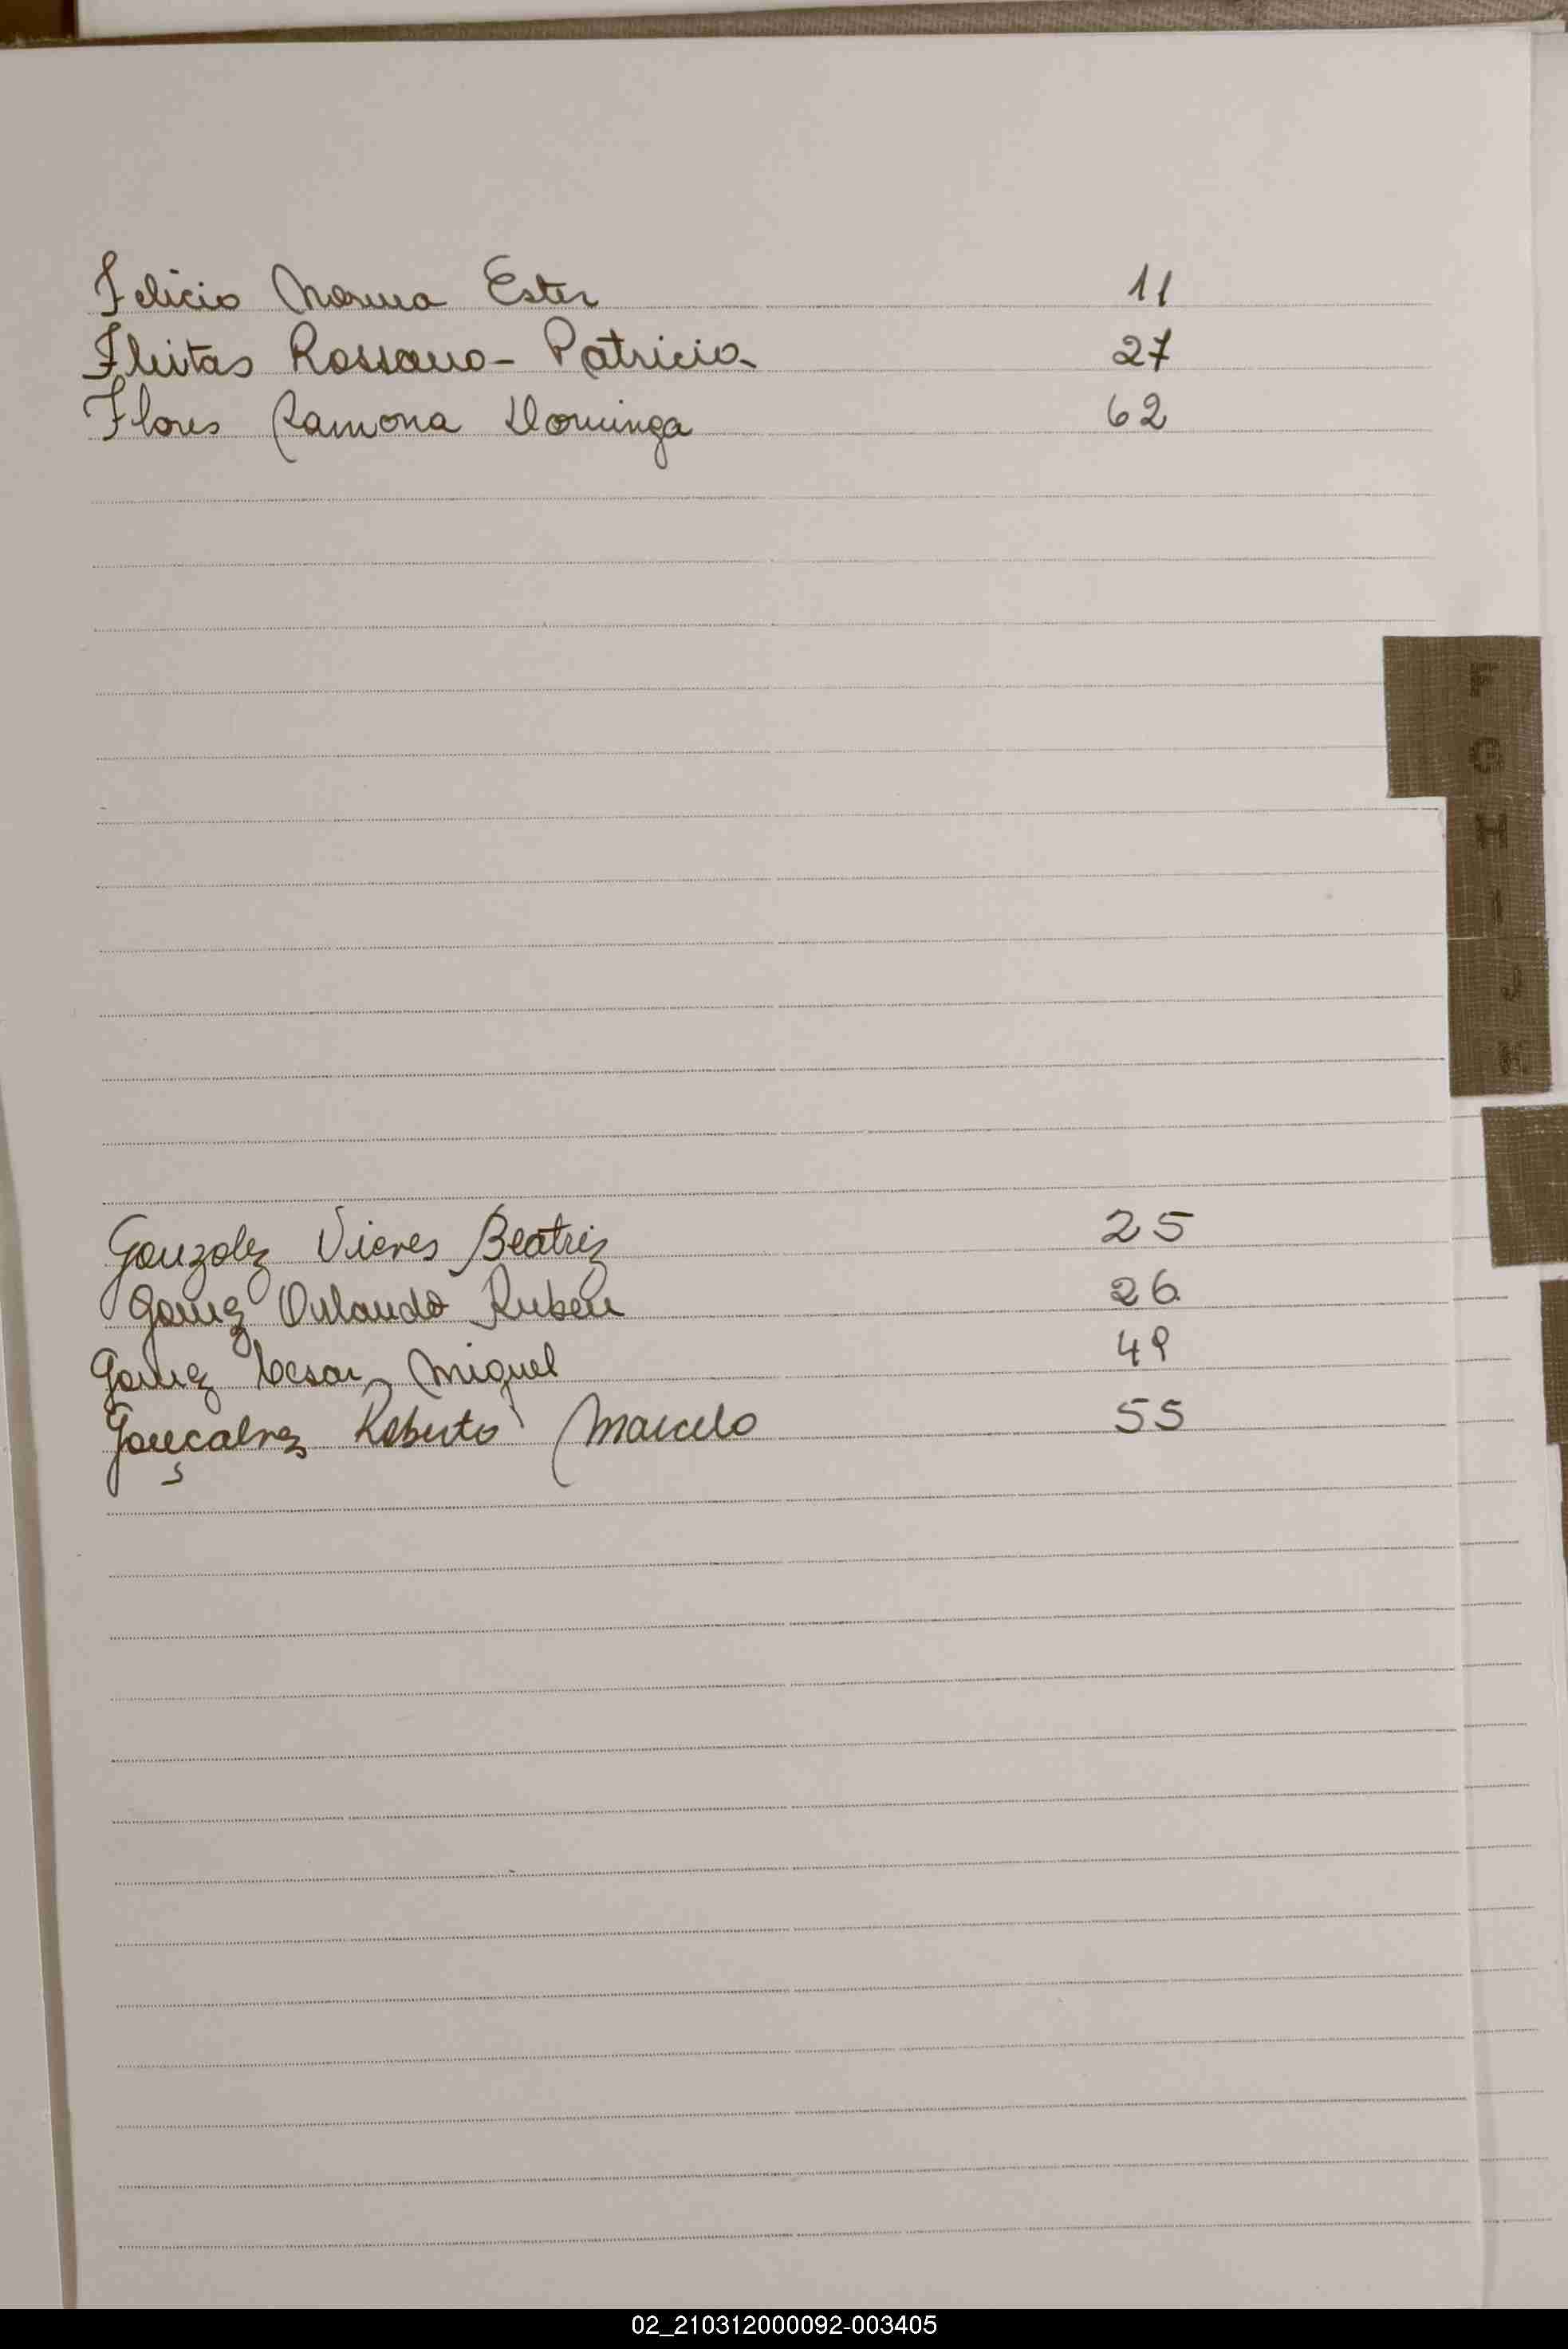 Felicio Norma Ester 11
Fleitas Rossana - Patricia 27
Flores Ramona Dominga 62
F
G
H
I
J
Gonzalez Vieres Beatriz 25
Gomez Orlando Ruben 26
Gomez Cesar Miguel 49
Gonçalvez Roberto Marcelo 55
s
02_210312000092-003405